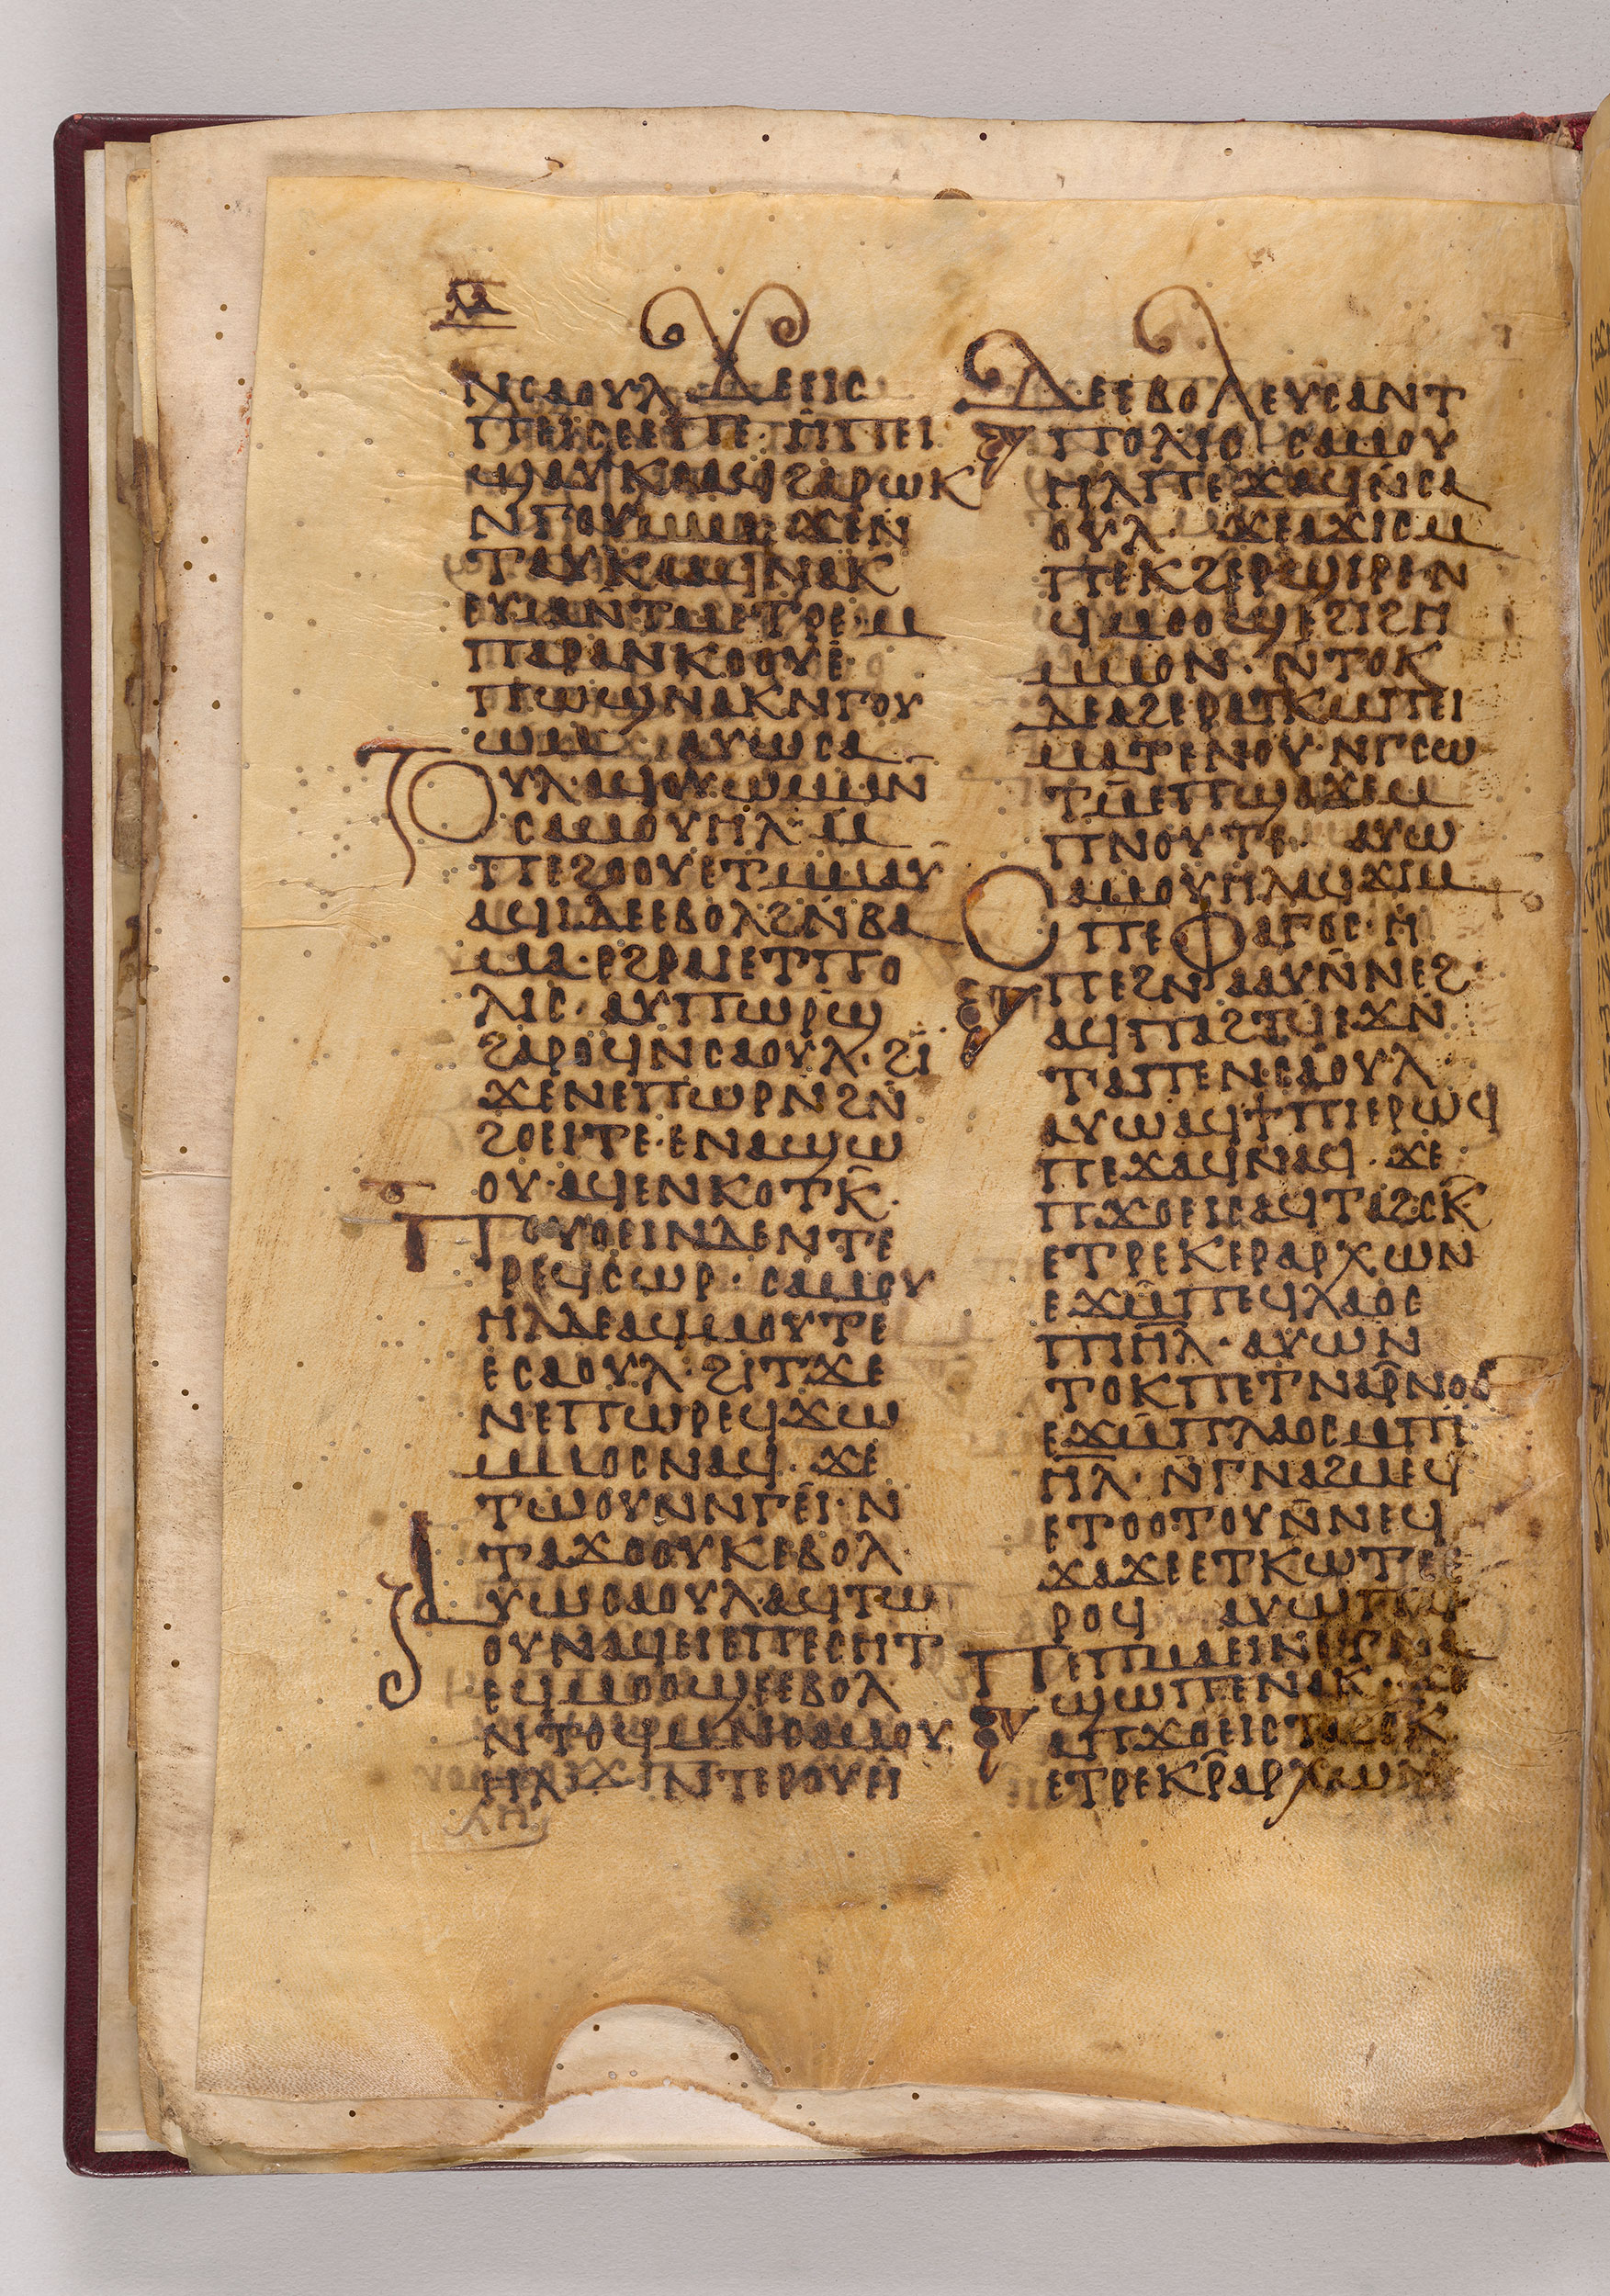 ⲛⲥⲁⲟⲩⲗ · ⲇⲉⲉⲓⲥ
ⲡⲉⲧⲥⲉⲉⲡⲉ · ⲙ̄ⲡⲉⲓ
ϣⲁⲩⲕⲁⲁϥ ϩⲁⲣⲱⲕ
ⲛⲅⲟⲩⲱⲙ · ϫⲉⲛ
ⲧⲁⲩⲕⲁⲁϥ ⲛⲁⲕ
ⲉⲩⲙⲛ̄ⲧⲙⲉⲧⲣⲉ · ⲙ
ⲡⲁⲣⲁⲛⲕⲟⲟⲩⲉ ·
ⲡⲱϣ ⲛⲁⲕ ⲛⲅⲟⲩ
ⲱⲙ · ⲁⲩⲱ ⲥⲁ
ⲟⲩⲗ · ⲁϥⲟⲩⲱⲙ ⲙⲛ̄
ⲥⲁⲙⲟⲩⲏⲗ · ⲙ̄
ⲡⲉϩⲟⲟⲩ ⲉⲧⲙⲙⲁⲩ
ⲁϥⲓ ⲇⲉ ⲉⲃⲟⲗ ϩⲛ̄ ⲃⲁ
ⲙⲁ · ⲉϩⲣⲁⲓ ⲉⲧⲡⲟ
ⲗⲓⲥ · ⲁⲩⲡⲱⲣϣ
ϩⲁⲣⲟϥ ⲛⲥⲁⲟⲩⲗ · ϩⲓ
ϫⲉⲛⲉⲡⲱⲣ ⲛ̄ϩⲛ̄
ϩⲟⲉⲓⲧⲉ · ⲉⲛⲁϣⲱ
ⲟⲩ · ⲁϥⲉⲛⲕⲟⲧⲕ̄ ·
ⲡⲟⲩⲟⲉⲓⲛ ⲇⲉ ⲛⲧⲉ
ⲣⲉϥⲥⲱⲣ · ⲥⲁⲙⲟⲩ
ⲏⲗ ⲇⲉ ⲁϥⲙⲟⲩⲧⲉ
ⲉⲥⲁⲟⲩⲗ · ϩⲓⲧϫⲉ
ⲛⲉⲡⲱⲣ ⲉϥϫⲱ
ⲙⲙⲟⲥ ⲛⲁϥ · ϫⲉ
ⲧⲱⲟⲩⲛ ⲛⲅⲉⲓ · ⲛ
ⲧⲁϫⲟⲟⲩⲕ ⲉⲃⲟⲗ
ⲁⲩⲱ ⲥⲁⲟⲩⲗ ⲁϥⲧⲱ
ⲟⲩⲛ ⲁϥⲉⲓ ⲉⲡⲉⲥⲏⲧ
ⲉϥⲙⲟⲟϣⲉ ⲉⲃⲟⲗ
ⲛⲧⲟϥ ⲙⲛ ⲥⲁⲙⲟⲩ
ⲏⲗ · ϫⲓⲛⲧⲉⲣⲟⲩⲉⲓ
ⲇⲉ ⲉⲃⲟⲗ ⲉⲩⲥⲁ ⲛⲧ
ⲡⲟⲗⲓⲥ ⲥⲁⲙⲟⲩ
ⲏⲗ ⲡⲉϫⲁϥ ⲛ̄ⲥⲁ
ⲟⲩⲗ ϫⲉ ⲁϫⲓⲥ ⲙ
ⲡⲉⲕϩⲉⲣϣⲓⲣⲉ · ⲛ
ϥⲙⲟⲟϣⲉ ϩⲓϩⲏ
ⲙⲙⲟⲛ · ⲛ̄ⲧⲟⲕ
ⲇⲉ ⲁϩⲉⲣⲁⲧⲕ ⲙ̄ⲡⲉⲓ
ⲙⲁ ⲧⲉⲛⲟⲩ · ⲛⲅⲥⲱ
ⲧⲙ̄ ⲉⲡϣⲁϫⲉ ⲙ
ⲡⲛⲟⲩⲧⲉ · ⲁⲩⲱ
ⲥⲁⲙⲟⲩⲏⲗ ⲁϥϫⲓ ⲙ
ⲡⲉⲫⲁⲅⲟⲥ · ⲙ̄
ⲡⲉϩⲛⲁⲁⲩ ⲛ̄ⲛⲉϩ
ⲁϥⲡⲁϩⲧϥ ⲉϫⲛ̄
ⲧⲁⲡⲉ ⲛⲥⲁⲟⲩⲗ
ⲁⲩⲱ ⲁϥϯⲡⲓ ⲉⲣⲱϥ
ⲡⲉϫⲁϥ ⲛⲁϥ · ϫⲉ
ⲡϫⲟⲉⲓⲥ ⲁϥⲧⲁϩⲥⲕ̄
ⲉⲧⲣⲉⲕⲉⲣⲁⲣⲭⲱⲛ
ⲉϫⲙ̄ ⲡⲉϥⲗⲁⲟⲥ
ⲡⲓⲏ̄ⲗ · ⲁⲩⲱ ⲛ
ⲧⲟⲕ ⲡⲉⲧⲛⲁⲣ̄ⲛⲟϭ
ⲉϫⲙ̄ ⲡⲗⲁⲟⲥ ⲙ̄ⲡⲓ
ⲏⲗ · ⲛ̄ⲅⲛⲁϩⲙⲉϥ
ⲉⲧⲟⲟⲧⲟⲩ ⲛ̄ⲛⲉϥ
ϫⲁϫⲉ ⲉⲧⲕⲱⲧⲉ ⲉ
ⲣⲟϥ ⲁⲩⲱ
ⲡⲉⲓⲙⲁⲉⲓⲛ ⲡⲉⲧⲛⲁ
ϣⲱⲡⲉ ⲛⲁⲕ · ϫⲉ
ⲁⲡϫⲟⲉⲓⲥ ⲧⲁϩⲥⲕ
ⲉⲧⲣⲉⲕⲣ̄ⲁⲣⲭⲱⲛ
ⲗⲏ